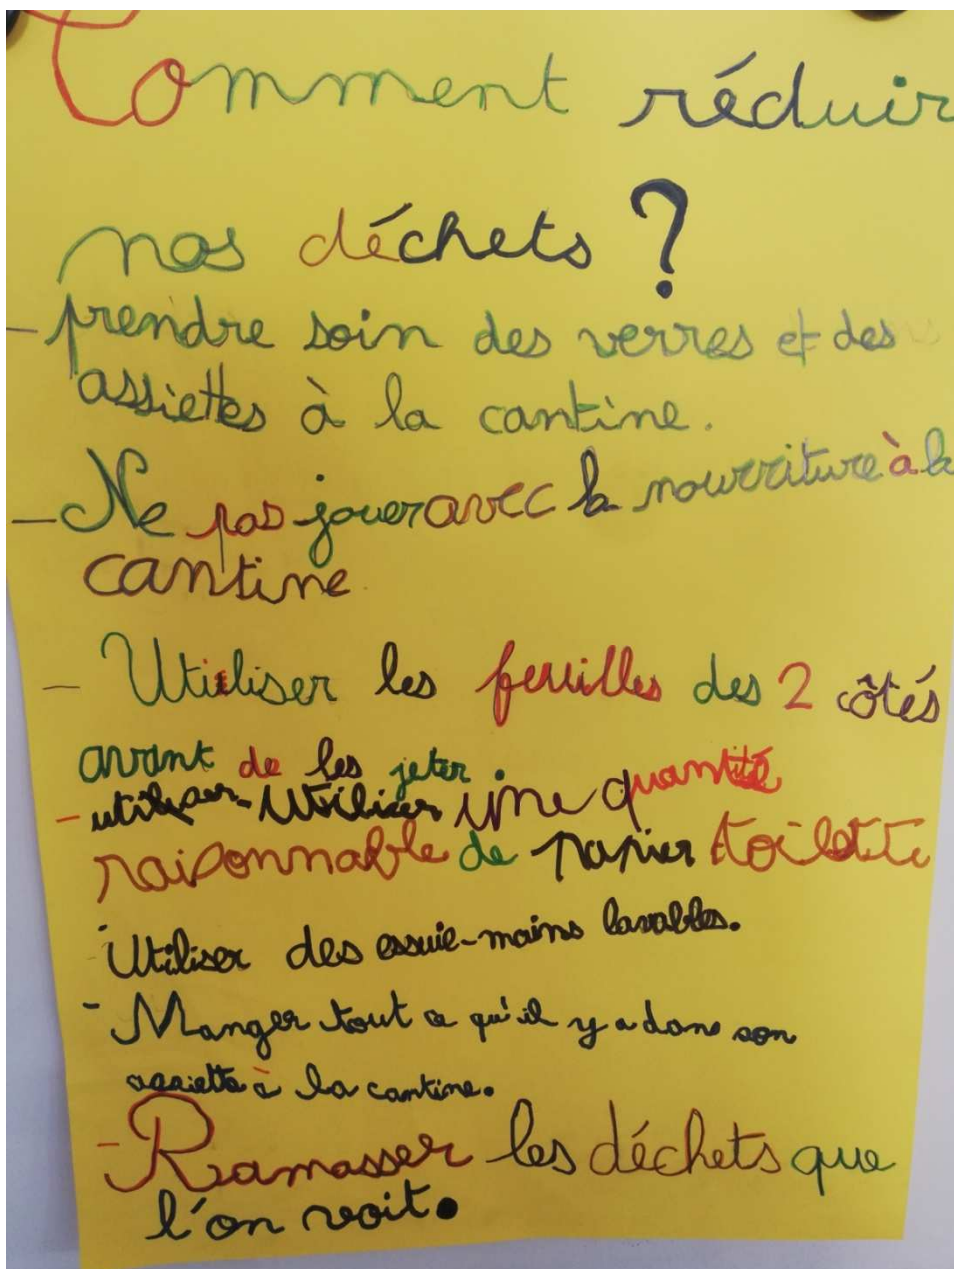 Comment réduir
nos déchets ?
- prendre soin des verres et des
assiettes à la cantine.
- Ne pas jouer avec la nourriture à la
cantine
- Utiliser les feuilles des 2 côtés
avant de les jeter.
- utiliser - Utiliser une quantité
raisonnable de papier toilette
- Utiliser des essuie-mains lavables.
- Manger tout ce qu'il y a dans son
assiette à la cantine.
- Ramasser les déchets que
l'on voit.